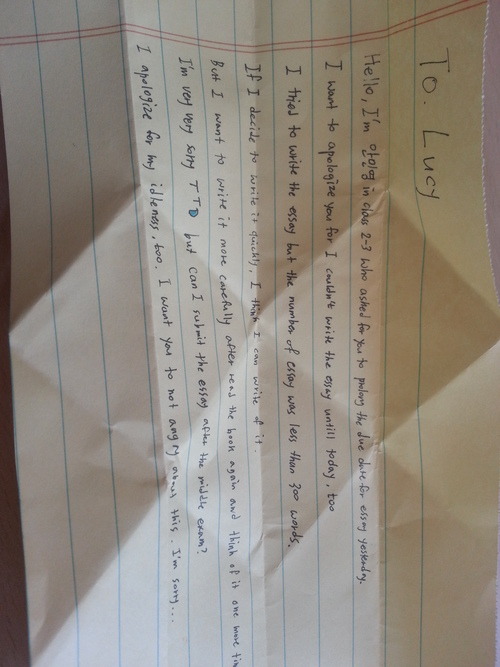 To. Lucy
Hello, I'm in class 2-3 who asked for you to prolong the due date for essay yesterday.
I want to apologize you for I couldn't write the essay untill today, too
I tried to write the essay but the number of essay was less than 300 words.
If I decide to write it quickly, I think I can write of it.
But I want to write it more carefully after read the book again and think of it one more
I'm very very sorry TT but can I submit the essay after the middle exam?
I apologize for my idleness, too. I want you to not angry about this. I'm sorry...